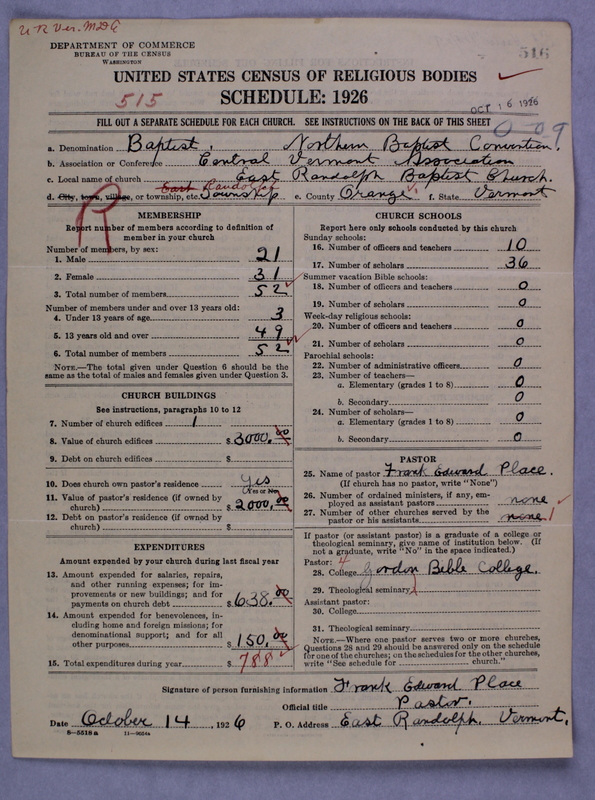 U R Ver. MDG
DEPARTMENT OF COMMERCE
BUREAU OF THE CENSUS
WASHINGTON
516
UNITED STATES CENSUS OF RELIGIOUS BODIES
515
SCHEDULE: 1926
OCT 16 1926
FILL OUT A SEPARATE SCHEDULE FOR EACH CHURCH. SEE INSTRUCTIONS ON THE BACK OF THIS SHEET
0-09
a. Denomination Baptist. Northern Baptist Convention.
b. Association or Conference Central Vermont Association
c. Local name of church East Randolph Baptist Church.
East Randolph
d. City, town, village, or township, etc. Township e. County Orange f. State Vermont
R
MEMBERSHIP
Report number of members according to definition of
member in your church
Number of members, by sex:
1. Male 21
2. Female 31
3. Total number of members 52
Number of members under and over 13 years old:
4. Under 13 years of age 3
5. 13 years old and over 49
6. Total number of members 52
NOTE.—The total given under Question 6 should be the
same as the total of males and females given under Question 3.
CHURCH BUILDINGS
See instructions, paragraphs 10 to 12
7. Number of church edifices 1
8. Value of church edifices $ 3000.00
9. Debt on church edifices $
10. Does church own pastor's residence Yes
Yes or No
11. Value of pastor's residence (if owned by
church) $ 2000.00
12. Debt on pastor's residence (if owned by
church) $
EXPENDITURES
Amount expended by your church during last fiscal year
13. Amount expended for salaries, repairs,
and other running expenses; for im-
provements or new buildings; and for
payments on church debt $ 638.00
14. Amount expended for benevolences, in-
cluding home and foreign missions; for
denominational support; and for all
other purposes $ 150.00
15. Total expenditures during year $ 788
CHURCH SCHOOLS
Report here only schools conducted by this church
Sunday schools:
16. Number of officers and teachers 10
17. Number of scholars 36
Summer vacation Bible schools:
18. Number of officers and teachers 0
19. Number of scholars 0
Week-day religious schools:
20. Number of officers and teachers 0
21. Number of scholars 0
Parochial schools:
22. Number of administrative officers 0
23. Number of teachers—
a. Elementary (grades 1 to 8) 0
b. Secondary 0
24. Number of scholars—
a. Elementary (grades 1 to 8) 0
b. Secondary 0
PASTOR
25. Name of pastor Frank Edward Place.
(If church has no pastor, write "None")
26. Number of ordained ministers, if any, em-
ployed as assistant pastors none
27. Number of other churches served by the
pastor or his assistants none 1
If pastor (or assistant pastor) is a graduate of a college or
theological seminary, give name of institution below. (If
not a graduate, write "No" in the space indicated.)
Pastor: 4
28. College Gordon Bible College.
29. Theological seminary
Assistant pastor:
30. College
31. Theological seminary
NOTE.—Where one pastor serves two or more churches,
Questions 28 and 29 should be answered only on the schedule
for one of the churches; on the schedules for the other churches,
write "See schedule for church."
Signature of person furnishing information Frank Edward Place
Official title Pastor.
Date October 14, 1926 P. O. Address East Randolph, Vermont.
8—5518 a 11—9054a